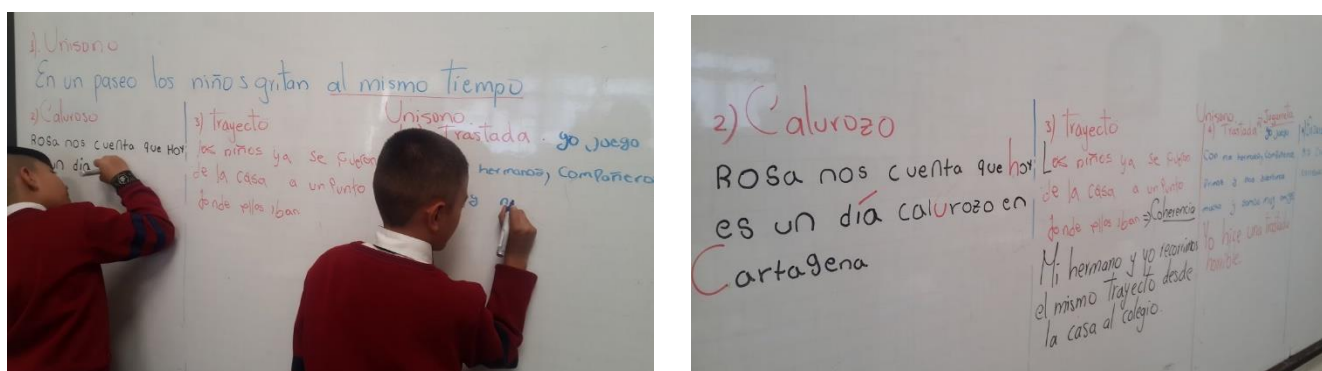 1). Unisono
En un paseo los niños gritan al mismo tiempo
Unisono
2) Caluroso
Rosa nos cuenta que Hoy
un día
3) Trayecto
los niños ya se fueron
de la casa a un Punto
donde ellos iban
Trastada. yo juego
hermanos, Compañero
y
2) Calurozo
Rosa nos cuenta que hoy
es un día calurozo en
Cartagena
3) Trayecto
Los niños ya se fueron
de la casa a un Punto
donde ellos iban => Coherencia
Mi hermano y yo recorrimos
el mismo Trayecto desde
la casa al colegio.
Unisono
4) Trastada
yo juego
Con mis hermanos, Compañeros
Primos y
mama y
Yo hice una trastada